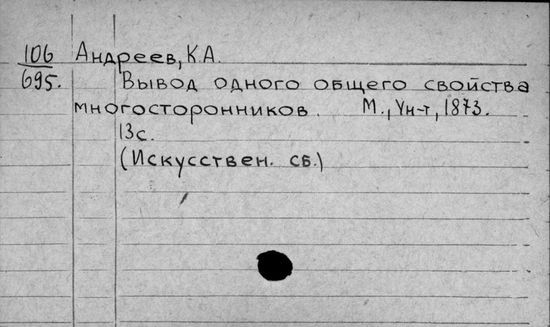 106 Андреев, К.А.
695. Вывод одного общего свойства
многосторонников. М., Ун-т, 1873.
13с.
(Искусствен. сб.)